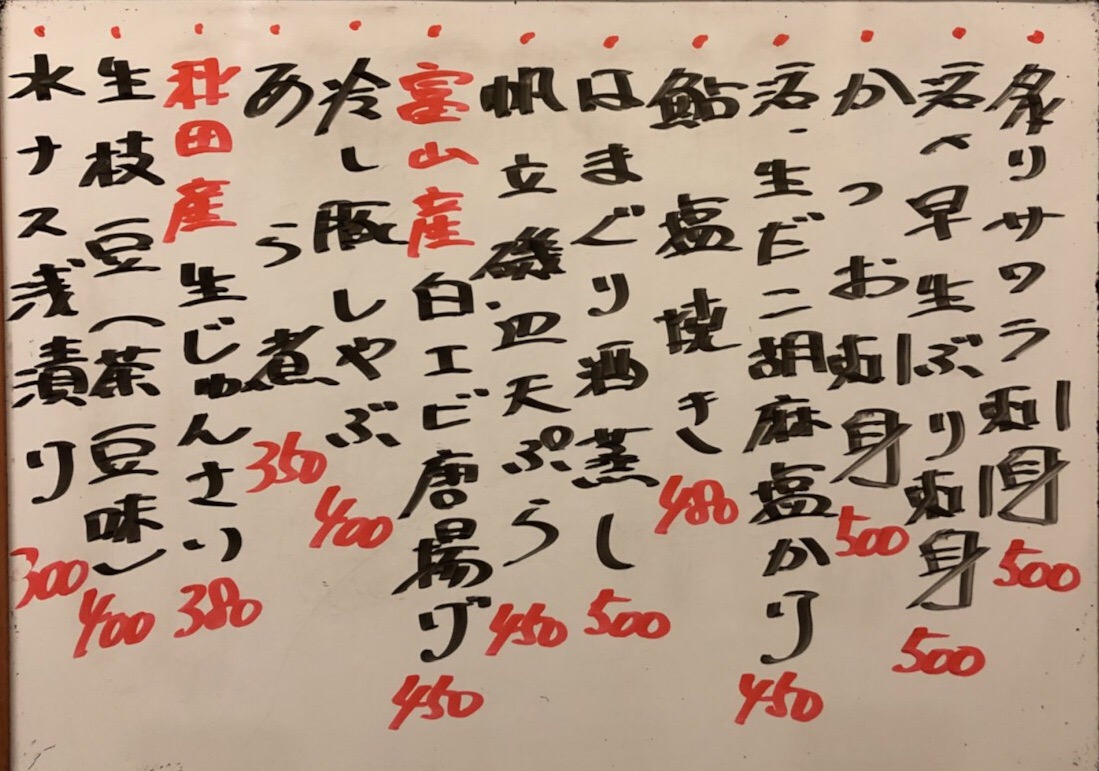 炙りサワラ刺身 500
活〆早生ぶり刺身 500
かつお刺身 500
活・生だこ胡麻塩かけ 450
鮎塩焼き 480
はまぐり酒蒸し 500
帆立磯辺天ぷら 450
富山産白エビ唐揚げ 450
冷し豚しゃぶ 400
あら煮 350
秋田産生じゅんさい 380
生枝豆(茶豆味) 400
水ナス浅漬け 300